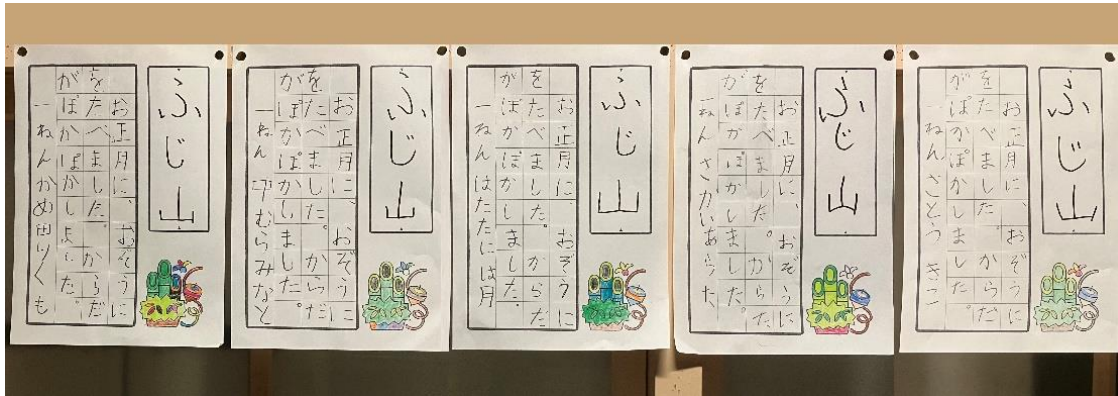 ふじ山
お正月に、おぞうに
をたべました。からだ
がぽかぽかしました。
一ねん さとう
ふじ山
お正月に、おぞうに
をたべました。からだ
がぽかぽかしました。
一ねん さかいあらた
ふじ山
お正月に、おぞうに
をたべました。からだ
がぽかぽかしました。
一ねん
ふじ山
お正月に、おぞうに
をたべました。からだ
がぽかぽかしました。
一ねん 中むらみなと
ふじ山
お正月に、おぞうに
をたべました。からだ
がぽかぽかしました。
一ねんかめ田りくも